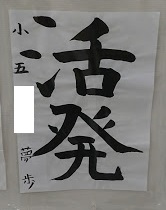 活発
小五
夢歩